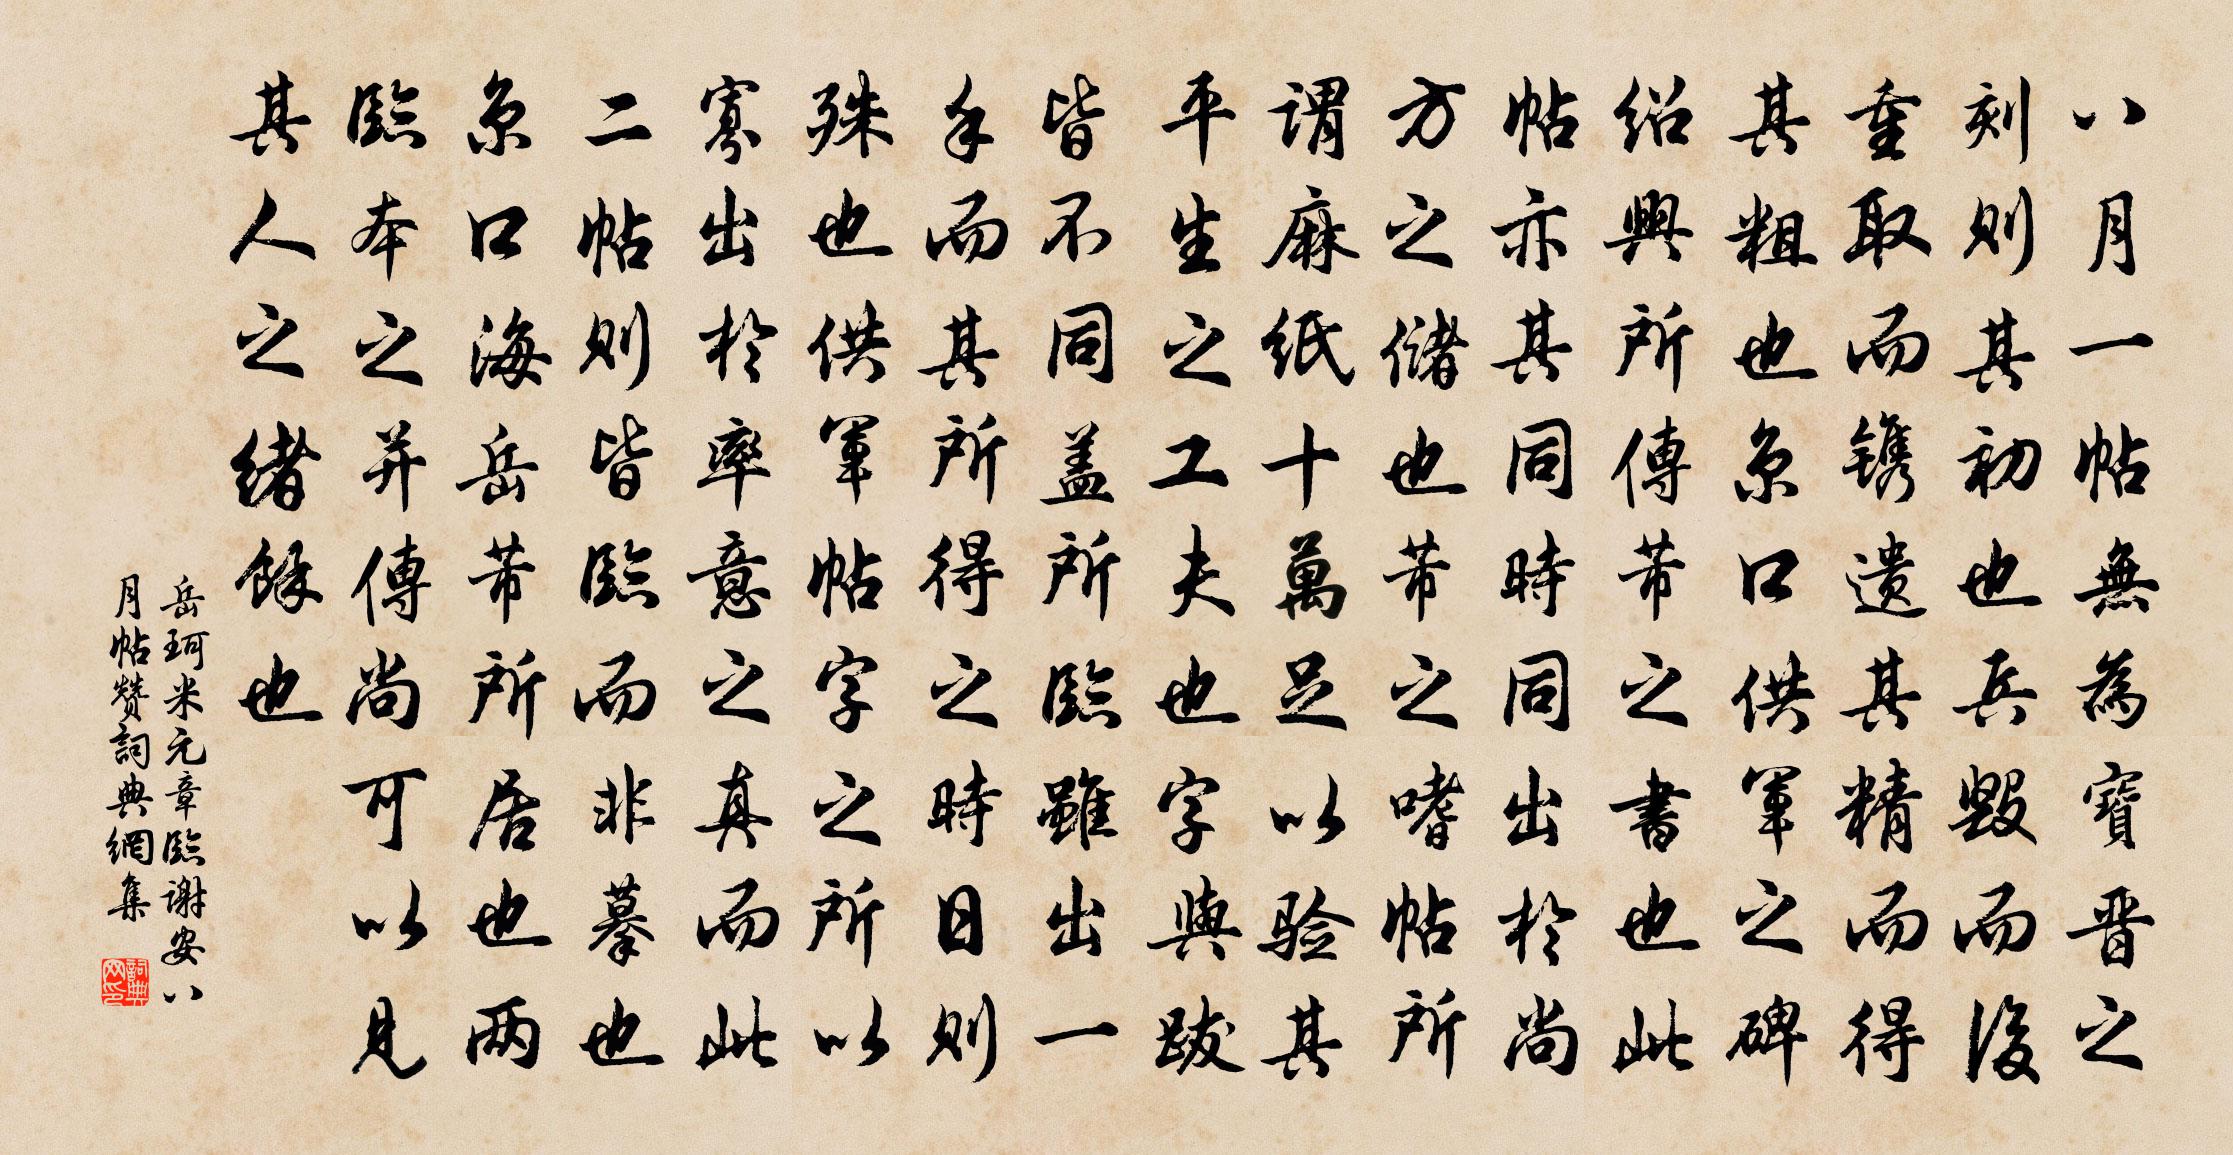 八月一帖無為寶晋之
刻則其初也兵毁而後
重取而镌遗其精而得
其粗也京口供軍之碑
绍興所傳芾之書也此
帖亦其同時同出於尚
方之储也芾之嗜帖所
谓麻紙十萬足以验其
平生之工夫也字與跋
皆不同盖所臨雖出一
手而其所得之時日則
殊也供軍帖字之所以
寡出於率意之真而此
二帖則皆臨而非摹也
京口海岳芾所居也两
臨本之并傳尚可以見
其人之緒餘也
岳珂米元章臨谢安八
月帖赞詞典網集
詞典网印